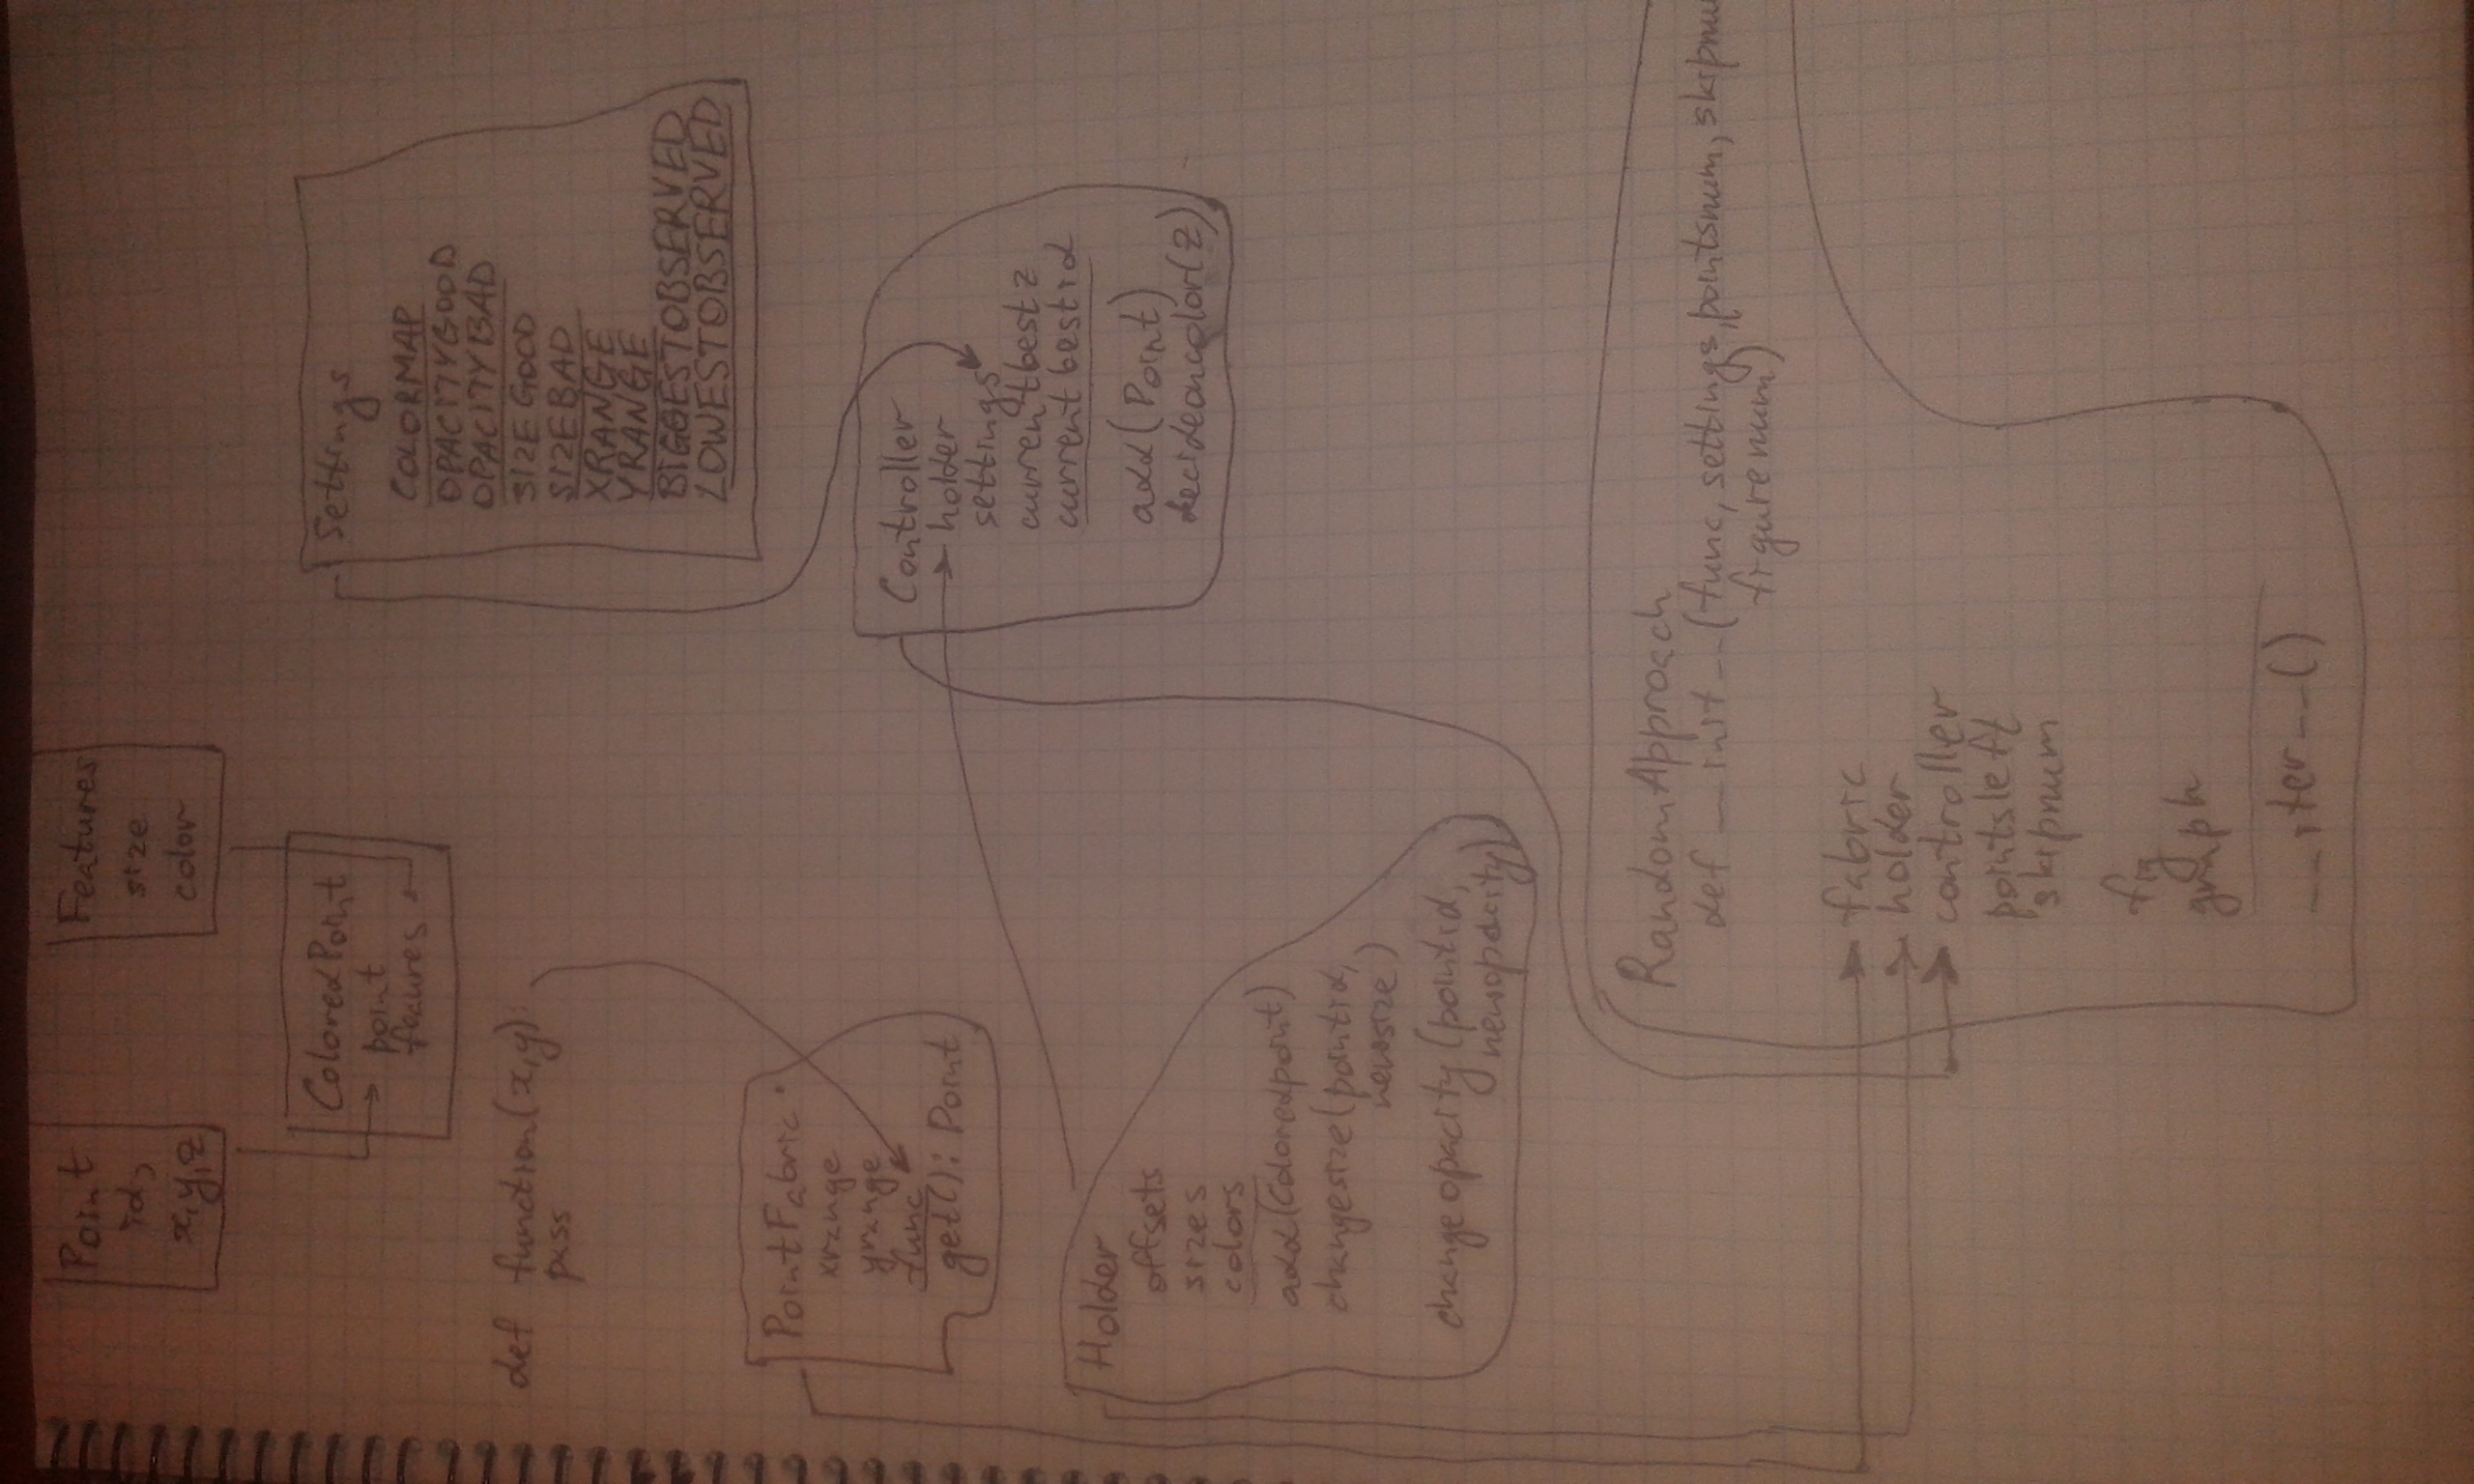 Point
id,
x,y,z
Features
size
color
ColoredPoint
point
feaures
Settings
COLORMAP
OPACITYGOOD
OPACITYBAD
SIZEGOOD
SIZEBAD
XRANGE
YRANGE
BIGGESTOBSERVED
LOWESTOBSERVED
def function(x,y):
pass
PointFabric
xrange
yrange
func
get(): Point
Controller
holder
settings
currentbestz
currentbestid
add(Point)
decideoncolor(z)
Holder
offsets
sizes
colors
add(Coloredpoint)
changesize(pointid,
newsize)
changeopacity(pointid,
newopacity)
RandomApproach
def __init__(func, settings, pointsnum, skipnu
figurenum)
fabric
holder
controller
pointsleft
skipnum
fig
graph
__iter__()